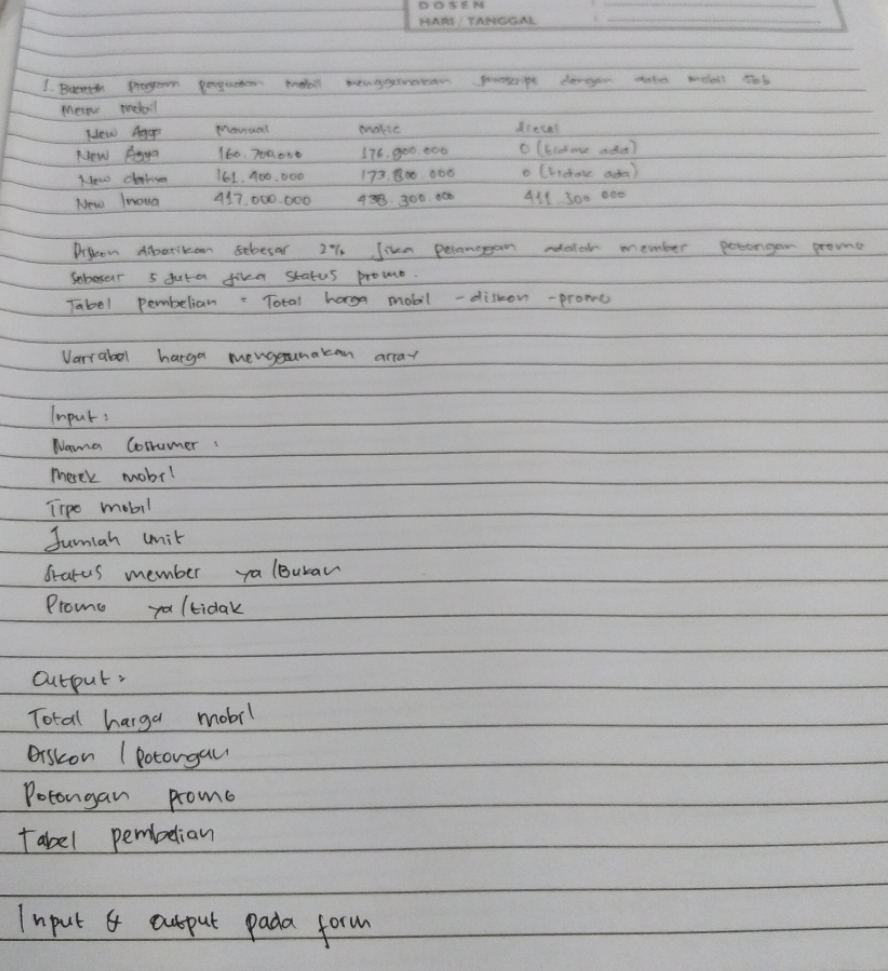 DOSEN :
HARI / TANGGAL :
1. program mobil menggunakan dengan data mobil
Merk mobil
New Manual Matic diesel
New Agya 160.700.000 176.800.000 0 (tidak ada)
New 161.400.000 173.800.000 0 (tidak ada)
New Inova 417.000.000 438.300.000 411.300.000
Diskon diberikan sebesar 2% jika pelanggan adalah member potongan promo
sebesar 5 juta jika status promo.
Tabel pembelian = Total harga mobil - diskon - promo
Variabel harga menggunakan array
Input :
Nama Costumer :
Merek mobil
Tipe mobil
Jumlah unit
Status member ya/Bukan
Promo ya/tidak
Output :
Total harga mobil
Diskon / potongan
Potongan promo
Tabel pembelian
Input & output pada form